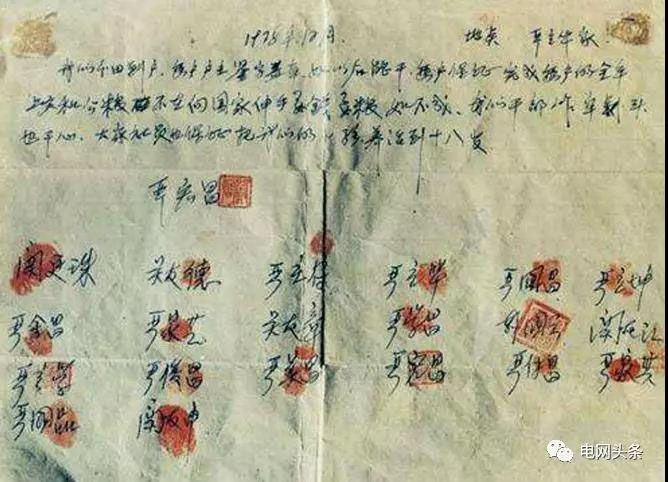 1978年12月 地点 严立华家
我们分田到户，每户户主签字盖章，如以后能干，每户保证完成每户的全年
上交和公粮，不在向国家伸手要钱要粮，如不成，我们干部作牢刹头
也干心，大家社员也保证把我们的小孩养活到十八岁
严宏昌
关廷珠 关友德 严立符 严立华 严国昌 严立坤
严金昌 严家芝 关友章 严学昌 韩国云 关友江
严立学 严俊昌 严美昌 严宏昌 严付昌 严家其
严国品 关友申
电网头条